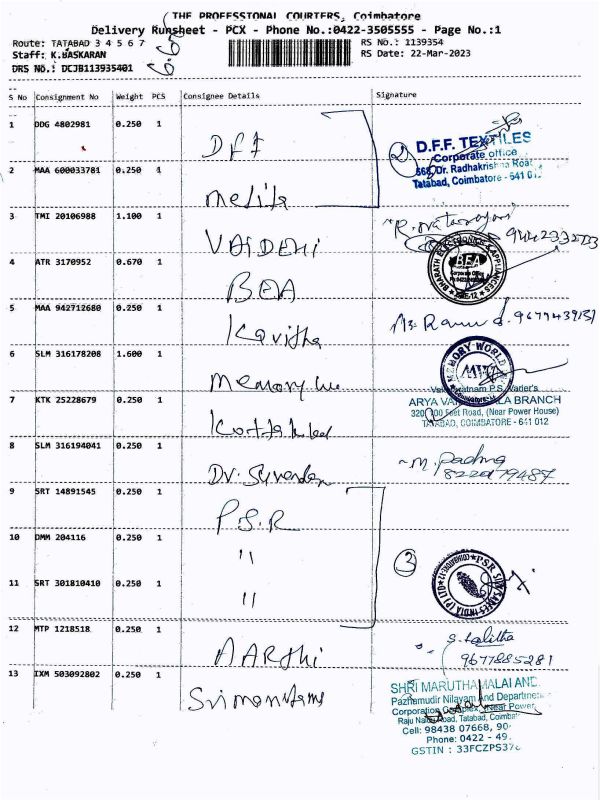 THE PROFESSIONAL COURIERS, Coimbatore
Delivery Runsheet - PCX - Phone No.:0422-3505555 - Page No.:1
Route: TATABAD 3 4 5 6 7
RS No.: 1139354
Staff: K.BASKARAN
RS Date: 22-Mar-2023
DRS No.: DCJB113935401
S No Consignment No Weight PCS Consignee Details Signature
1 DDG 4802981 0.250 1
DFF
D.F.F. TEXTILES
Corporate office
568, Dr. Radhakrishna Road
Tatabad, Coimbatore - 641 012
2 MAA 600033781 0.250 1
2
3 TMI 20106988 1.100 1
VAIDEHI
4 ATR 3170952 0.670 1
BEA
BHARATH ELECTRONICS & APPLIANCES
BEA
5 MAA 942712680 0.250 1
Kavitha
6 SLM 316178208 1.600 1
Memory
MEMORY WORLD
7 KTK 25228679 0.250 1
ARYA VAIDYA SALA BRANCH
320, 100 Feet Road, (Near Power House)
TATABAD, COIMBATORE - 641 012
8 SLM 316194041 0.250 1
M. Padma
Dr. Surendar
9 SRT 14891545 0.250 1
P.S.R
10 DMM 204116 0.250 1
"
3
PSR SILK SAREES INDIA (P) LTD
11 SRT 301810410 0.250 1
"
12 MTP 1218518 0.250 1
AARthi
S. Lalitha
9677885281
13 IXM 503092802 0.250 1
SHRI MARUTHAMALAI AND
Pazhamudir Nilayam And Department
Corporation Complex, (Near Power
Raju Naidu Road, Tatabad, Coimbat
Cell: 98438 07668, 90
Phone: 0422 - 49
GSTIN : 33FCZPS37